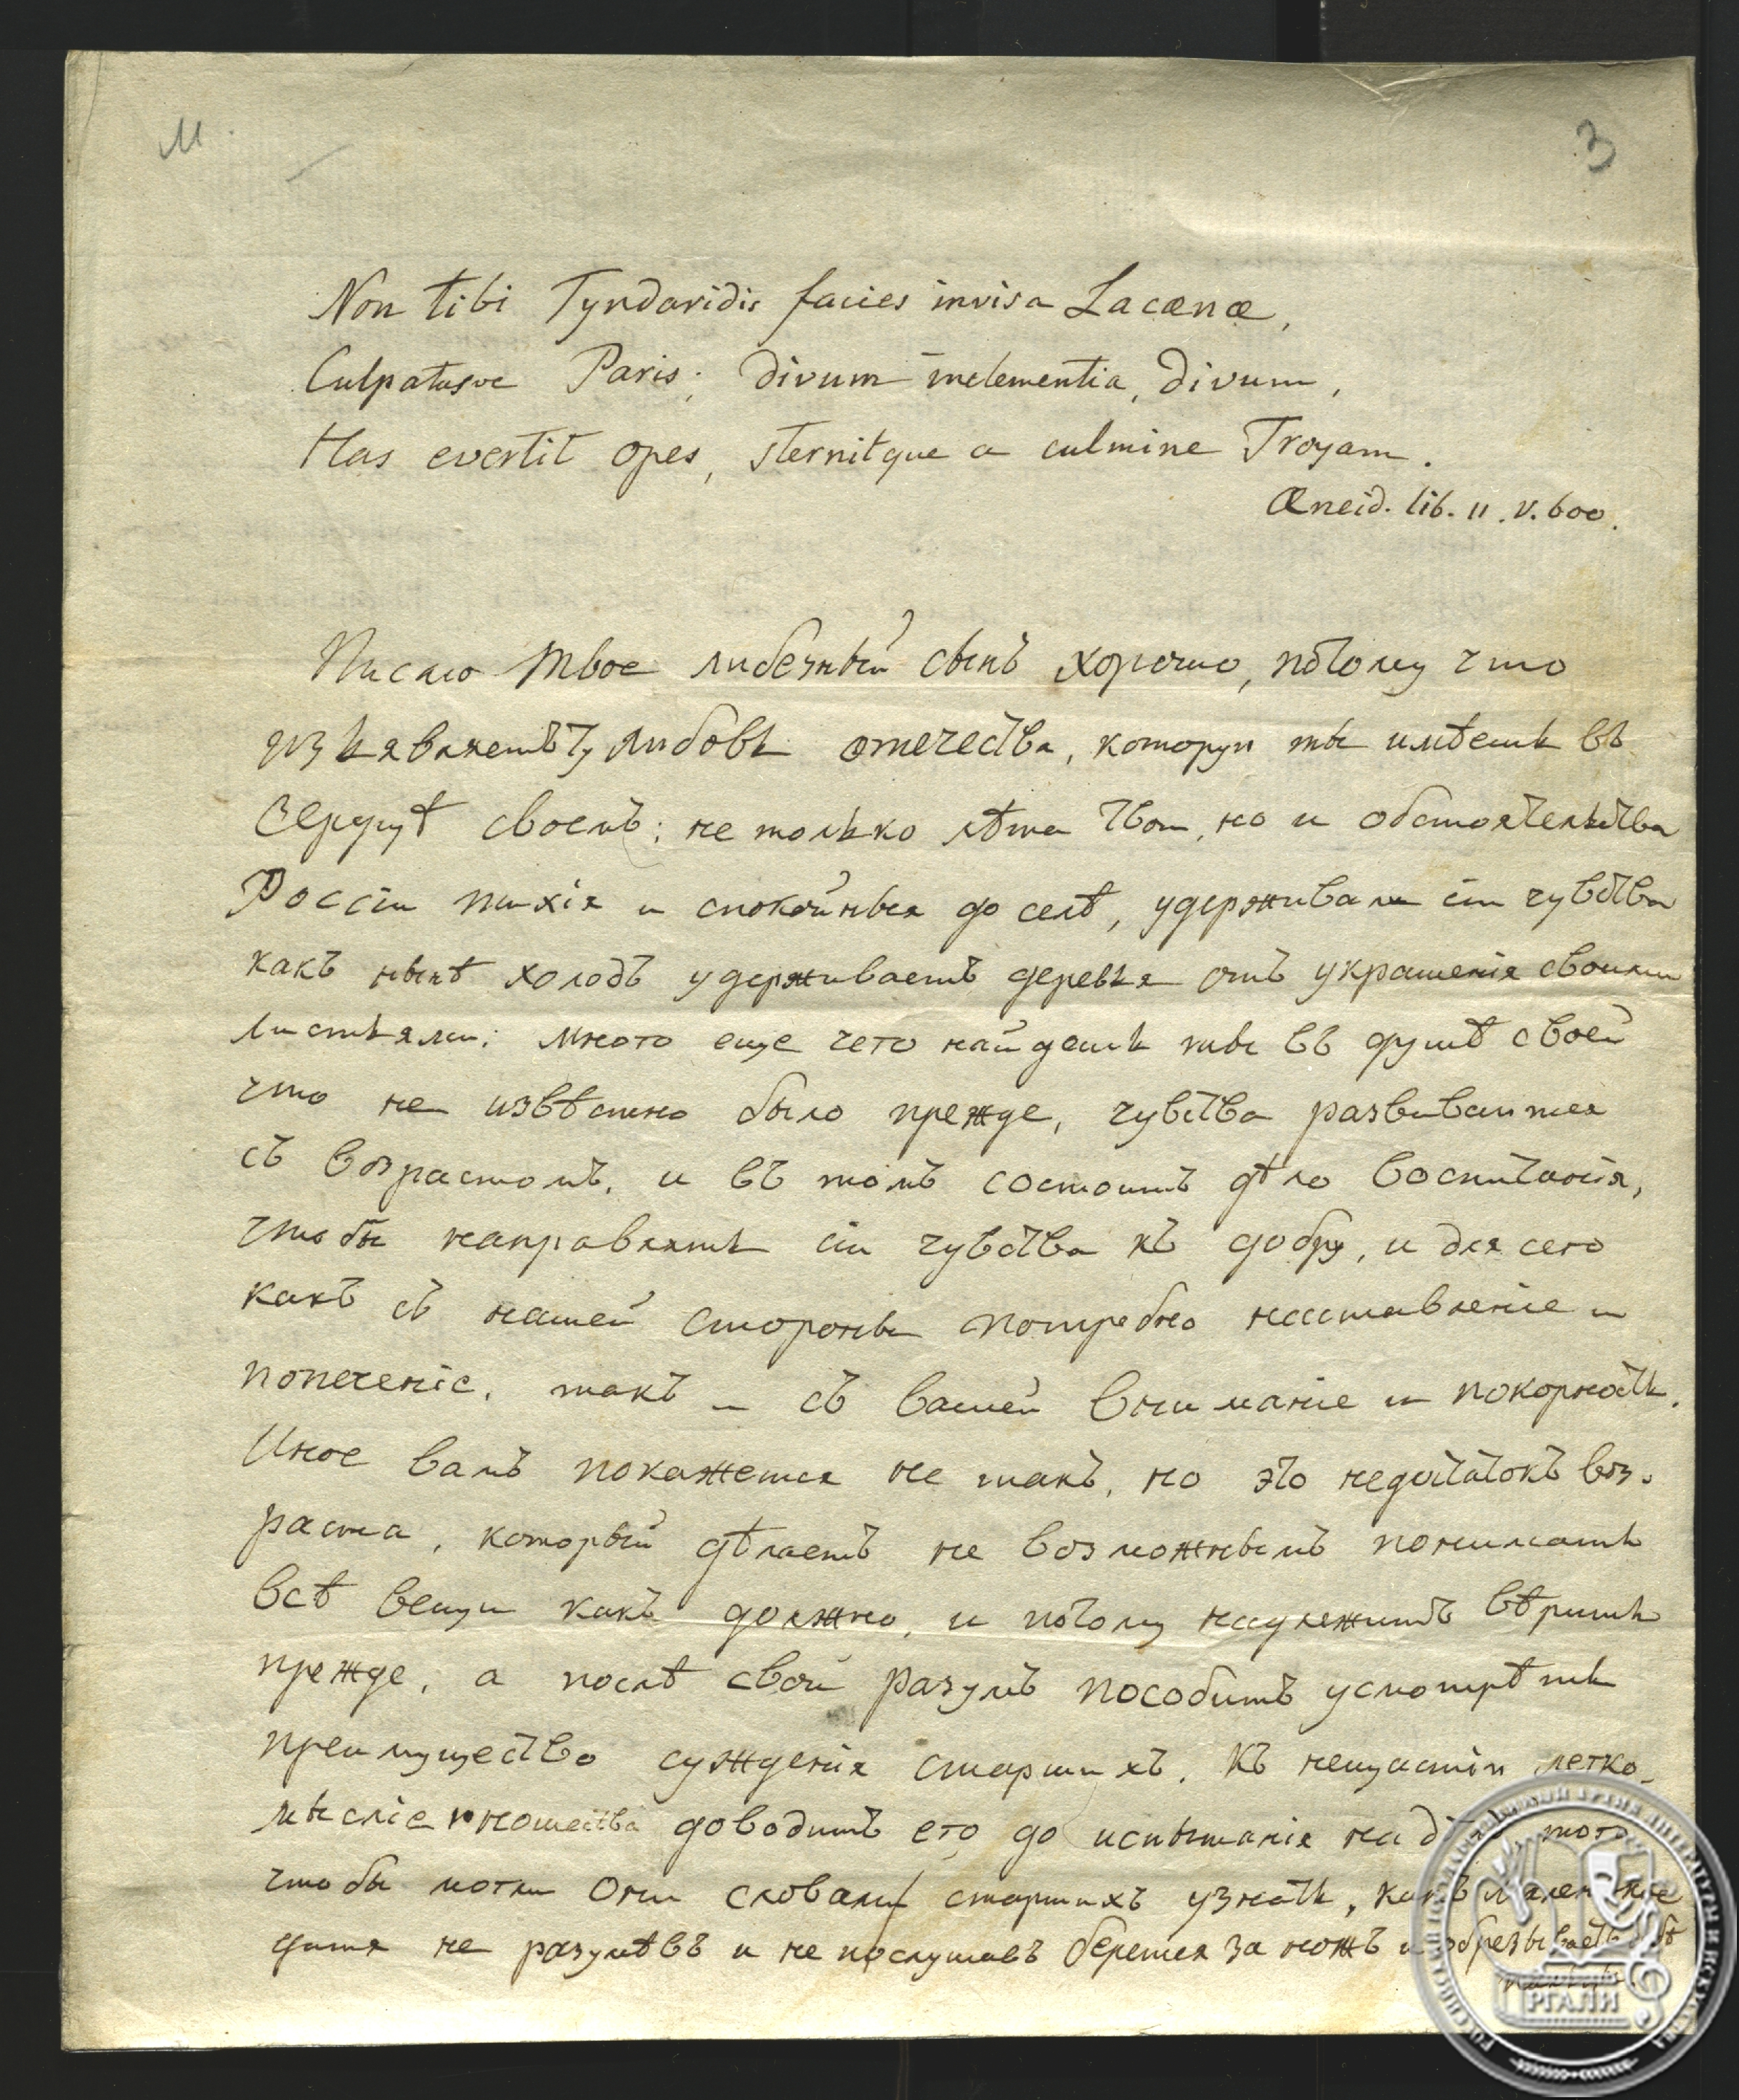 М.
3
Non tibi Tyndaridis facies invisa Lacænæ,
Culpatusve Paris; divum inclementia, divum,
Has evertit opes, sternitque a culmine Troyam.
Æneid. lib. II. v. 600.
Писмо твое любезный сынъ хорошо, потому что
изъявляетъ ту любовь отечества, которую ты имѣешь въ
Сердцѣ своемъ; не только лѣта твои, но и обстоятельства
Россіи тихія и спокойныя до селѣ, удерживали сіи чувства
какъ нынѣ холодъ удерживаетъ деревья отъ украшенія своими
листьями; много еще чего найдешь ты въ душѣ своей
что не извѣстно было прежде, чувства развиваются
съ возрастомъ, и въ томъ состоитъ дѣло воспитанія,
чтобы направлять сіи чувства къ добру, и для сего
какъ съ нашей стороны потребно наставленіе и
попеченіе, такъ и съ вашей вниманіе и покорность.
Иное вамъ покажется не такъ, но это недостатокъ воз-
раста, который дѣлаетъ не возможнымъ понимать
всѣ вещи какъ должно, и потому надлежитъ вѣрить
прежде, а послѣ свой разумъ пособитъ усмотрѣть
преимущество сужденія старшихъ. Къ нещастію легко-
мысліе юношества доводитъ его до испытанія на того
чтобы могли они словами старшихъ узнать, какъ маленькое
дитя не разумѣвъ и не послушавъ берется за ножъ и обрезываетъ себѣ
РГАЛИ